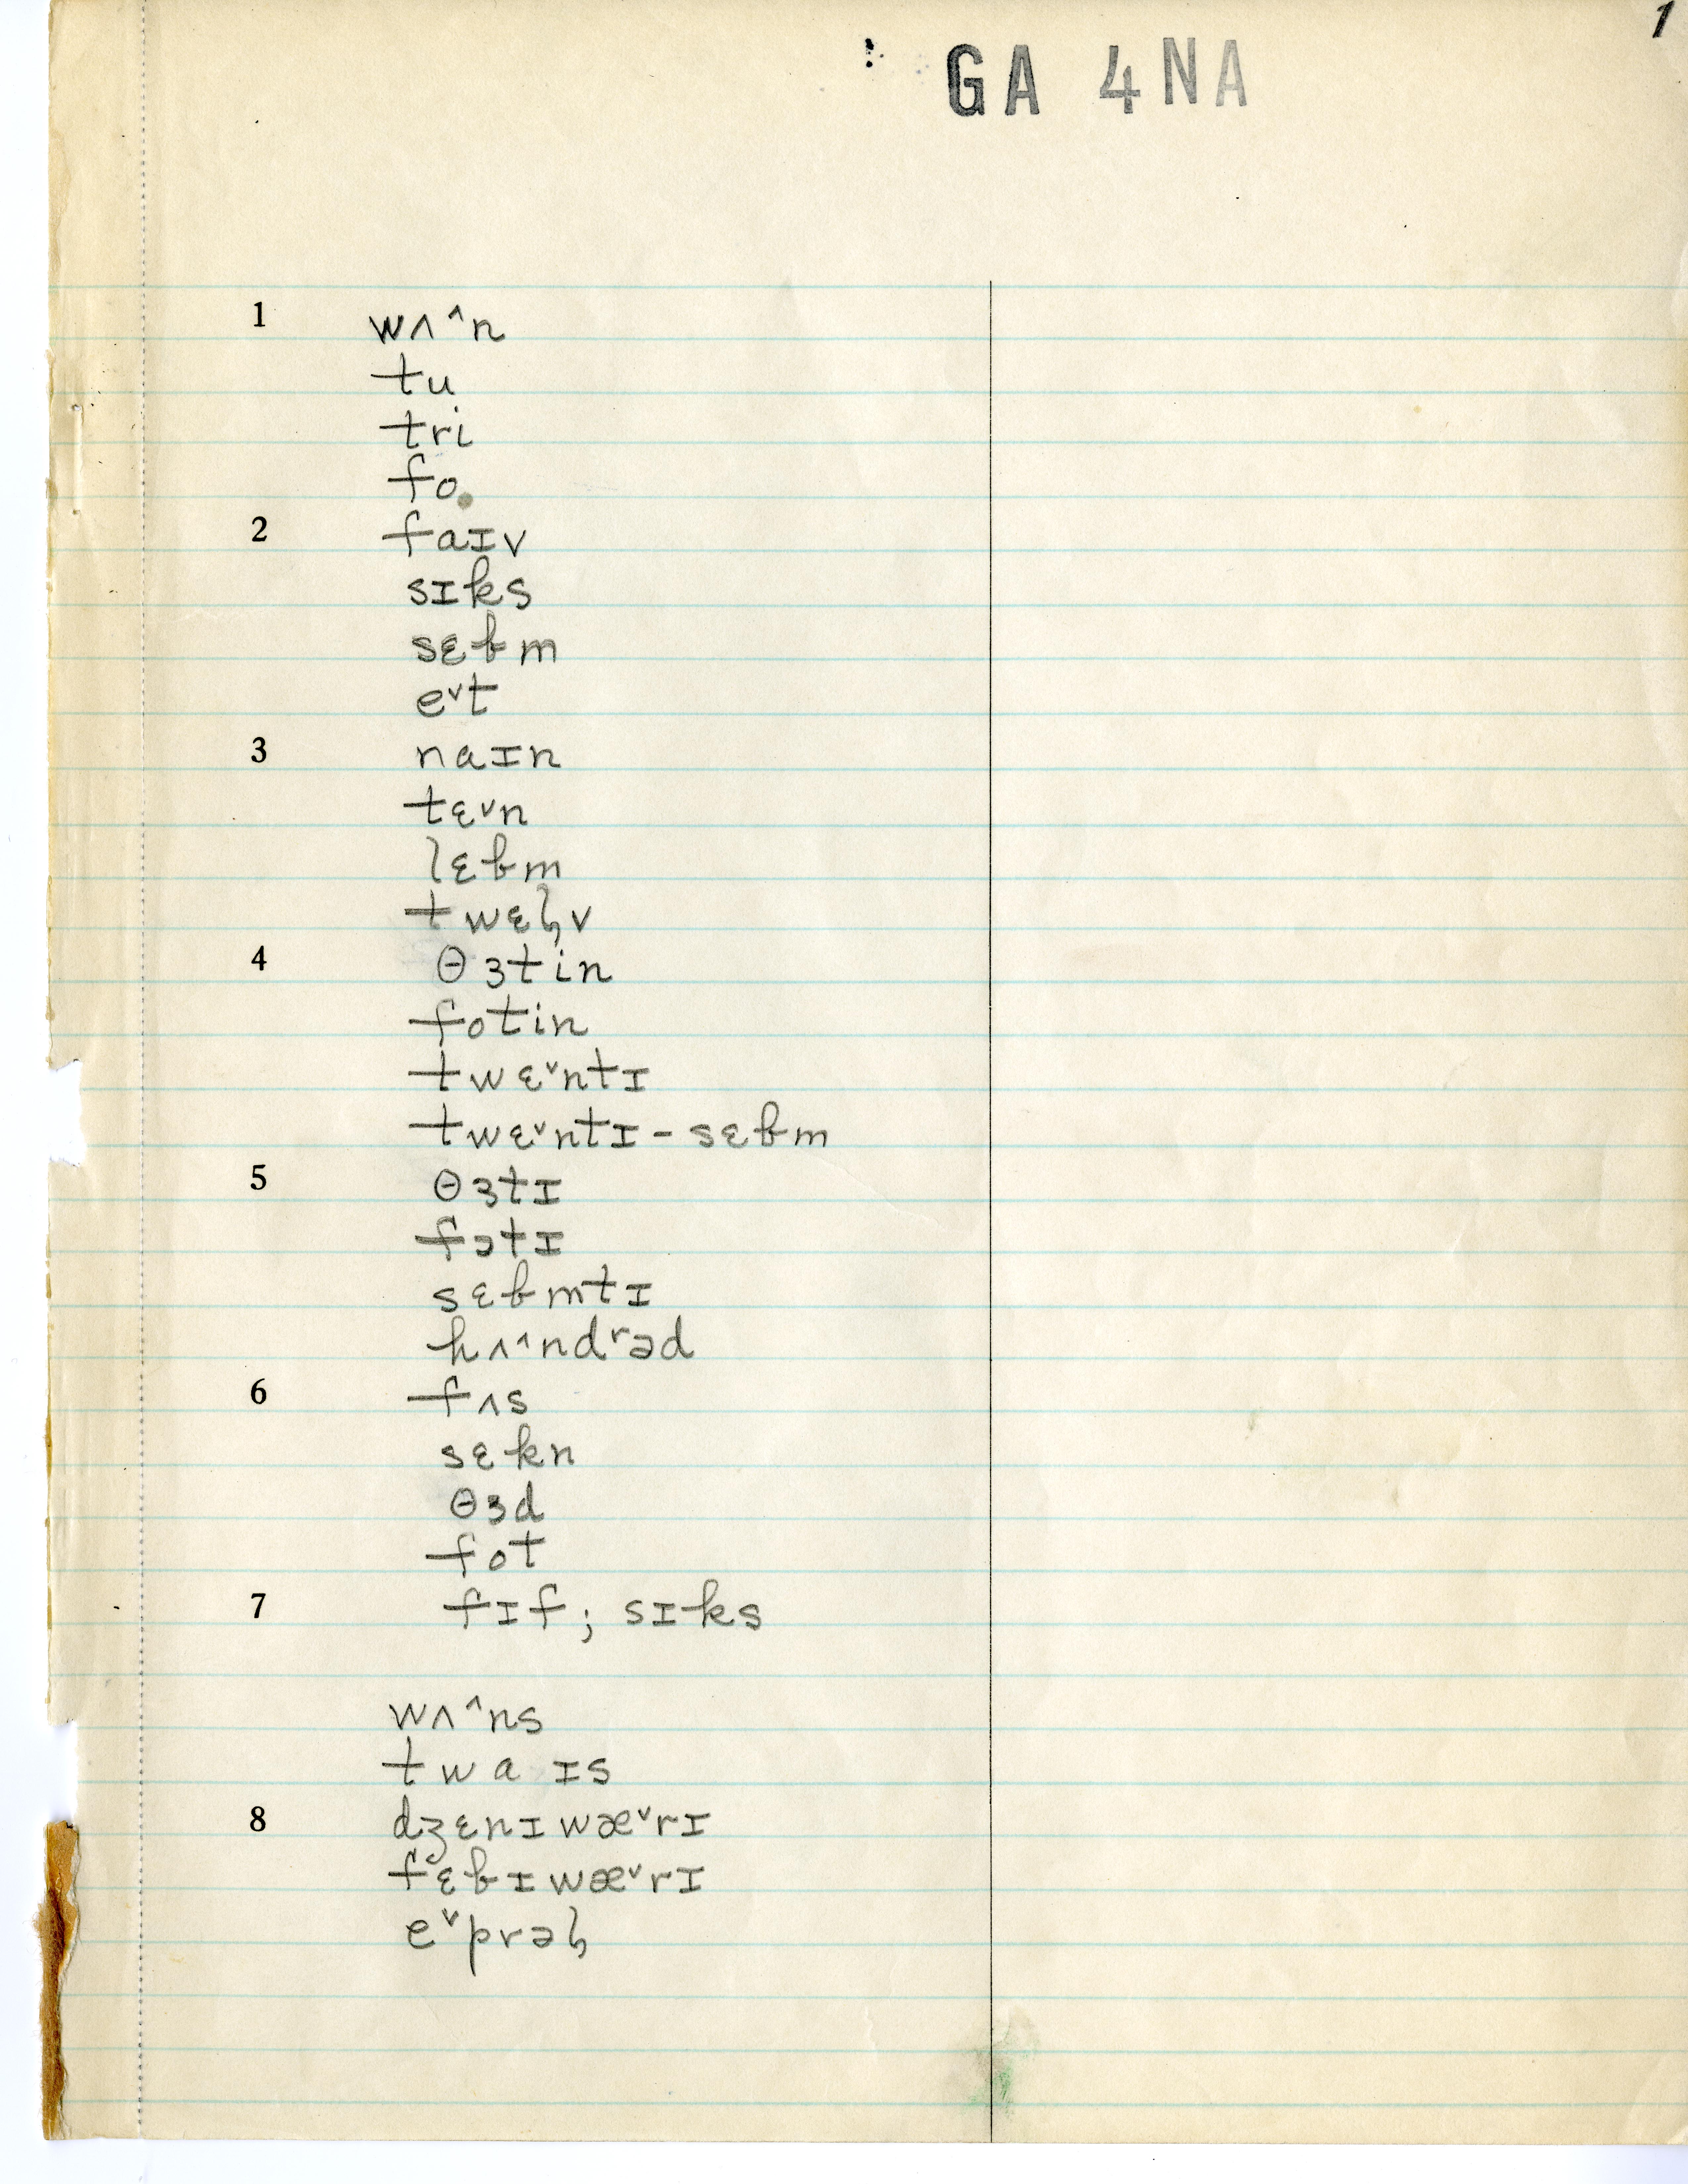 1
GA 4NA
1 wʌ˄n
tu
tri
fo
2 faɪv
sɪks
sɛbm
e˅t
3 naɪn
tɛ˅n
lɛbm
twɛɫv
4 θɜtin
fotin
twɛ˅ntɪ
twɛ˅ntɪ - sɛbm
5 θɜtɪ
fɔtɪ
sɛbmtɪ
hʌ˄ndʳəd
6 fʌs
sɛkn
θɜd
fot
7 fɪf; sɪks
wʌ˄ns
twaɪs
8 dʒɛnɪwæ˅rɪ
fɛbɪwæ˅rɪ
e˅prəɫ